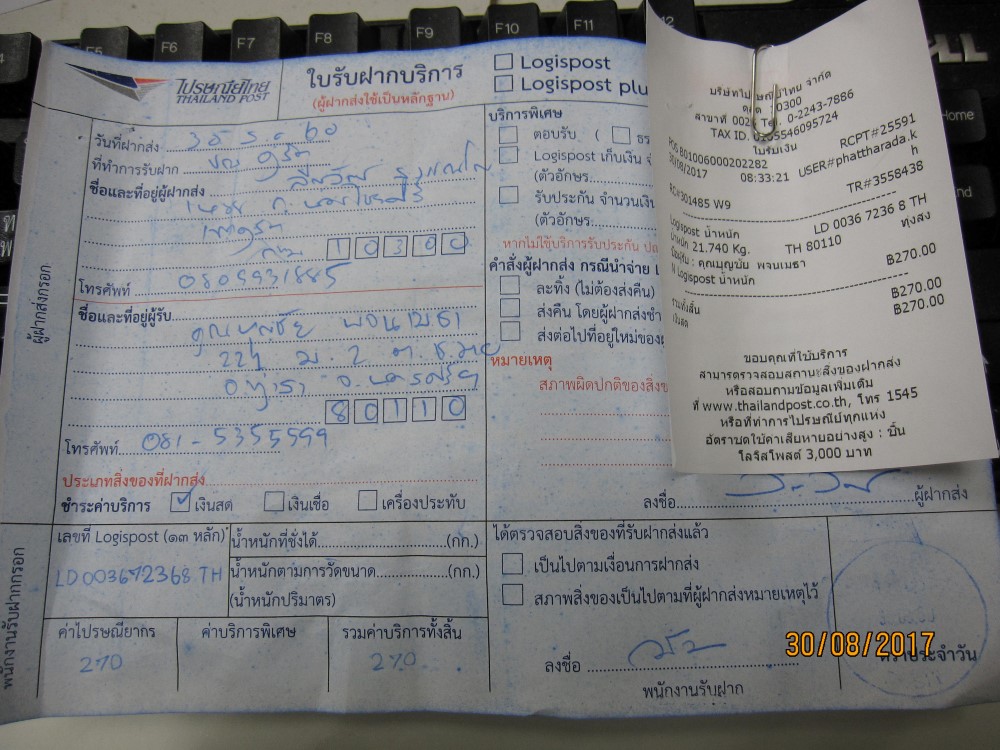 F5 F6 F7 F8 F9 F10 F11 12
DELL
Home
ไปรษณีย์ไทย
THAILAND POST
ใบรับฝากบริการ
(ผู้ฝากส่งใช้เป็นหลักฐาน)
Logispost
Logispost plu
ผู้ฝากส่งกรอก
วันที่ฝากส่ง
ที่ทำการรับฝาก
ชื่อและที่อยู่ผู้ฝากส่ง
10300
โทรศัพท์ 0805931885
ชื่อและที่อยู่ผู้รับ
คุณบุญชัย พจนเมธา
80110
โทรศัพท์ 081-5355599
ประเภทสิ่งของที่ฝากส่ง
ชำระค่าบริการ เงินสด เงินเชื่อ เครื่องประทับ
บริการพิเศษ
ตอบรับ ( ธร
Logispost เก็บเงิน
(ตัวอักษร
รับประกัน จำนวนเงิน
(ตัวอักษร
หากไม่ใช้บริการรับประกัน
คำสั่งผู้ฝากส่ง กรณีนำจ่าย
ละทิ้ง (ไม่ต้องส่งคืน)
ส่งคืน โดยผู้ฝากส่งชำ
ส่งต่อไปที่อยู่ใหม่ของ
หมายเหตุ
สภาพผิดปกติของสิ่งข
ลงชื่อ ผู้ฝากส่ง
พนักงานรับฝากกรอก
เลขที่ Logispost (๑๓ หลัก)
LD003672368 TH
น้ำหนักที่ชั่งได้ (กก.)
น้ำหนักตามการวัดขนาด (กก.)
(น้ำหนักปริมาตร)
ค่าไปรษณียากร ค่าบริการพิเศษ รวมค่าบริการทั้งสิ้น
270 270
ได้ตรวจสอบสิ่งของที่รับฝากส่งแล้ว
เป็นไปตามเงื่อนการฝากส่ง
สภาพสิ่งของเป็นไปตามที่ผู้ฝากส่งหมายเหตุไว้
ลงชื่อ
พนักงานรับฝาก
ตราประจำวัน
30/08/2017
บริษัทไปรษณีย์ไทย จำกัด
0-2243-7856
TAX ID. 0105546095724
ใบรับเงิน
POS B01006000202282 RCPT#25591
30/08/2017 08:33:21 USER#phattharada.k
h
RC#301485 W9 TR#3558438
Logispost น้ำหนัก LD 0036 7236 8 TH
น้ำหนัก 21.740 Kg. TH 80110 ทุ่งสง
ชื่อผู้รับ : คุณบุญชัย พจนเมธา
N Logispost น้ำหนัก ฿270.00
รวมทั้งสิ้น ฿270.00
เงินสด ฿270.00
ขอบคุณที่ใช้บริการ
สามารถตรวจสอบสถานะสิ่งของฝากส่ง
หรือสอบถามข้อมูลเพิ่มเติม
ที่ www.thailandpost.co.th, โทร 1545
หรือที่ทำการไปรษณีย์ทุกแห่ง
อัตราชดใช้ค่าเสียหายอย่างสูง : ชิ้น
โลจิสโพสต์ 3,000 บาท